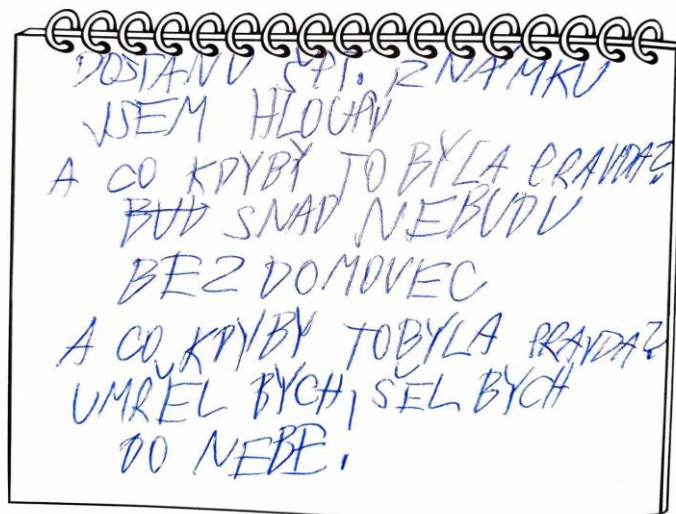 DOSTANU ŠPT. ZNÁMKU
JSEM HLOUPÝ
A CO KDYBY TO BYLA PRAVDA?
BUD SNAD NEBUDU
BEZDOMOVEC
A CO KDYBY TOBYLA PRAVDA?
UMŘEL BYCH, ŠEL BYCH
DO NEBE.